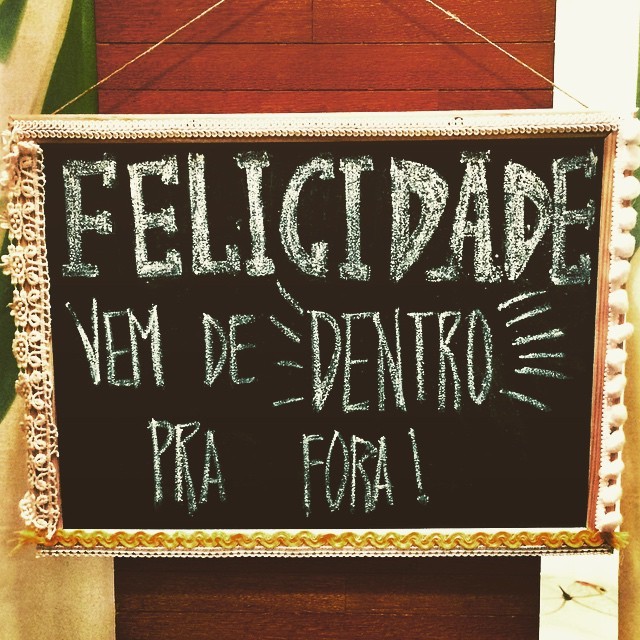 FELICIDADE
VEM DE DENTRO
PRA FORA!